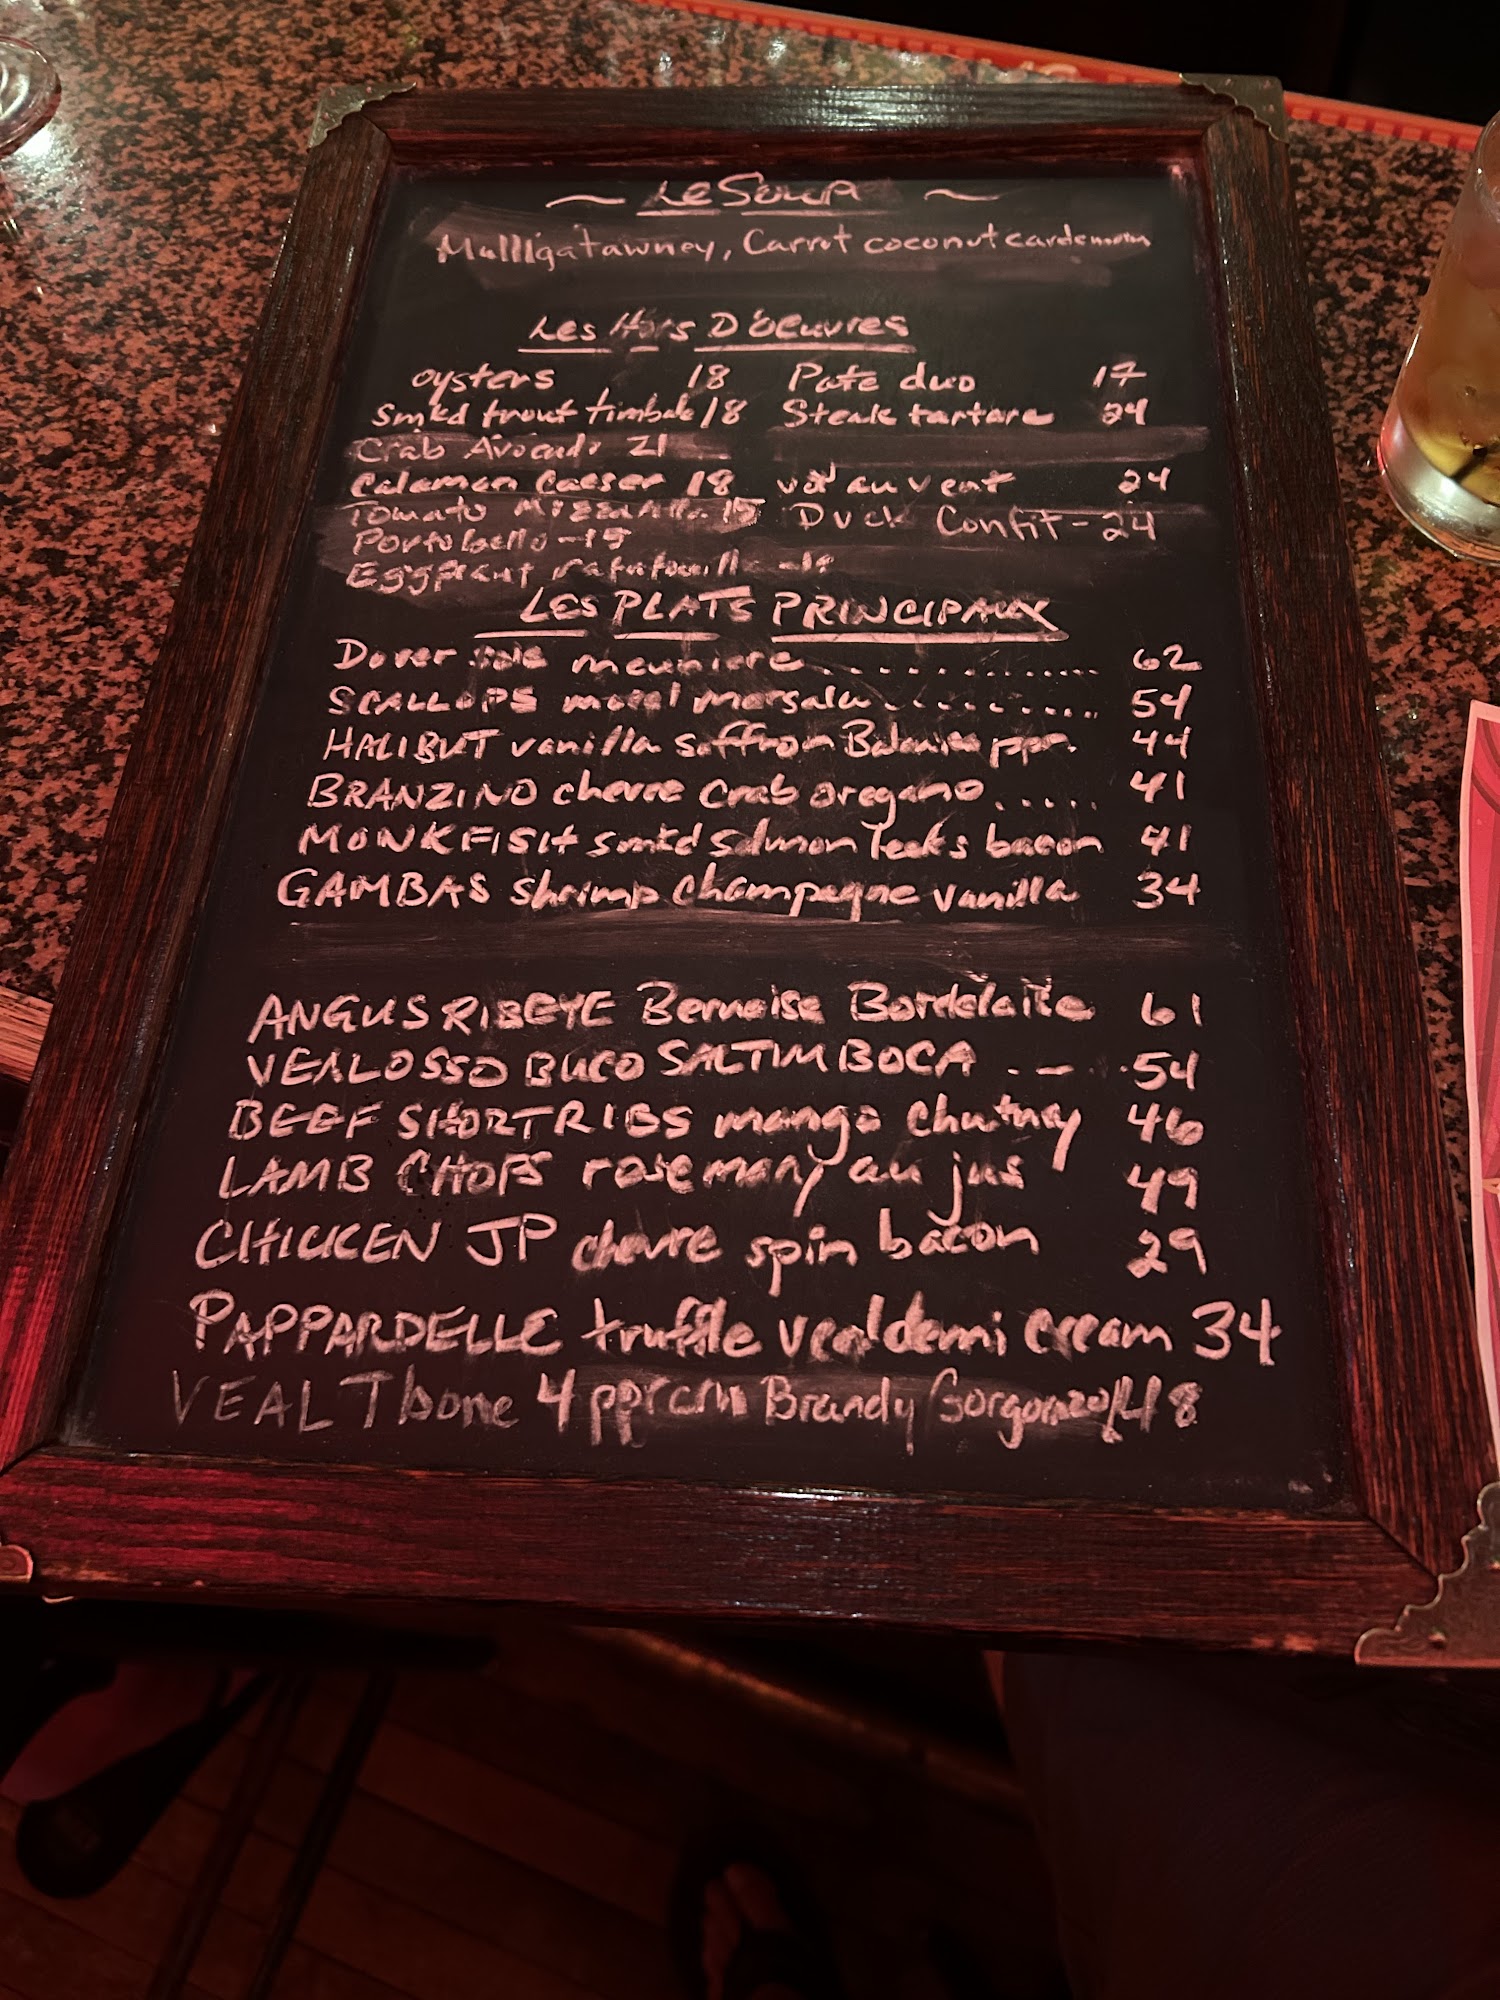 ~ Le Soup ~
Mulligatawney, Carrot coconut cardemom
Les Hors D'oeuvres
oysters 18 Pate duo 17
Smkd trout timbale 18 Steak tartare 24
Crab Avocado 21
Calamari Caeser 18 vol au vent 24
Tomato Mozzarella 15 Duck Confit - 24
Portobello - 15
Eggplant ratatouille -
LES PLATS PRINCIPAUX
Dover sole meuniere ............. 62
SCALLOPS morel marsala .......... 54
HALIBUT vanilla saffron ppr. 44
BRANZINO chevre crab oregano ..... 41
MONKFISH smkd salmon leeks bacon 41
GAMBAS shrimp champagne vanilla 34
ANGUS RIBEYE Bernaise Bordelaise 61
VEAL OSSO BUCO SALTIMBOCA . - . . 54
BEEF SHORTRIBS mango chutney 46
LAMB CHOPS rosemary au jus 49
CHICKEN JP chevre spin bacon 29
PAPPARDELLE truffle veal demi cream 34
VEAL Tbone 4 pprcrn Brandy Gorgonzola 48